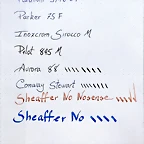 Parker 75 F
Inoxcrom Sirocco M
Pilot 845 M
Aurora 88
Conway Stewart
Sheaffer No Nosense
Sheaffer No